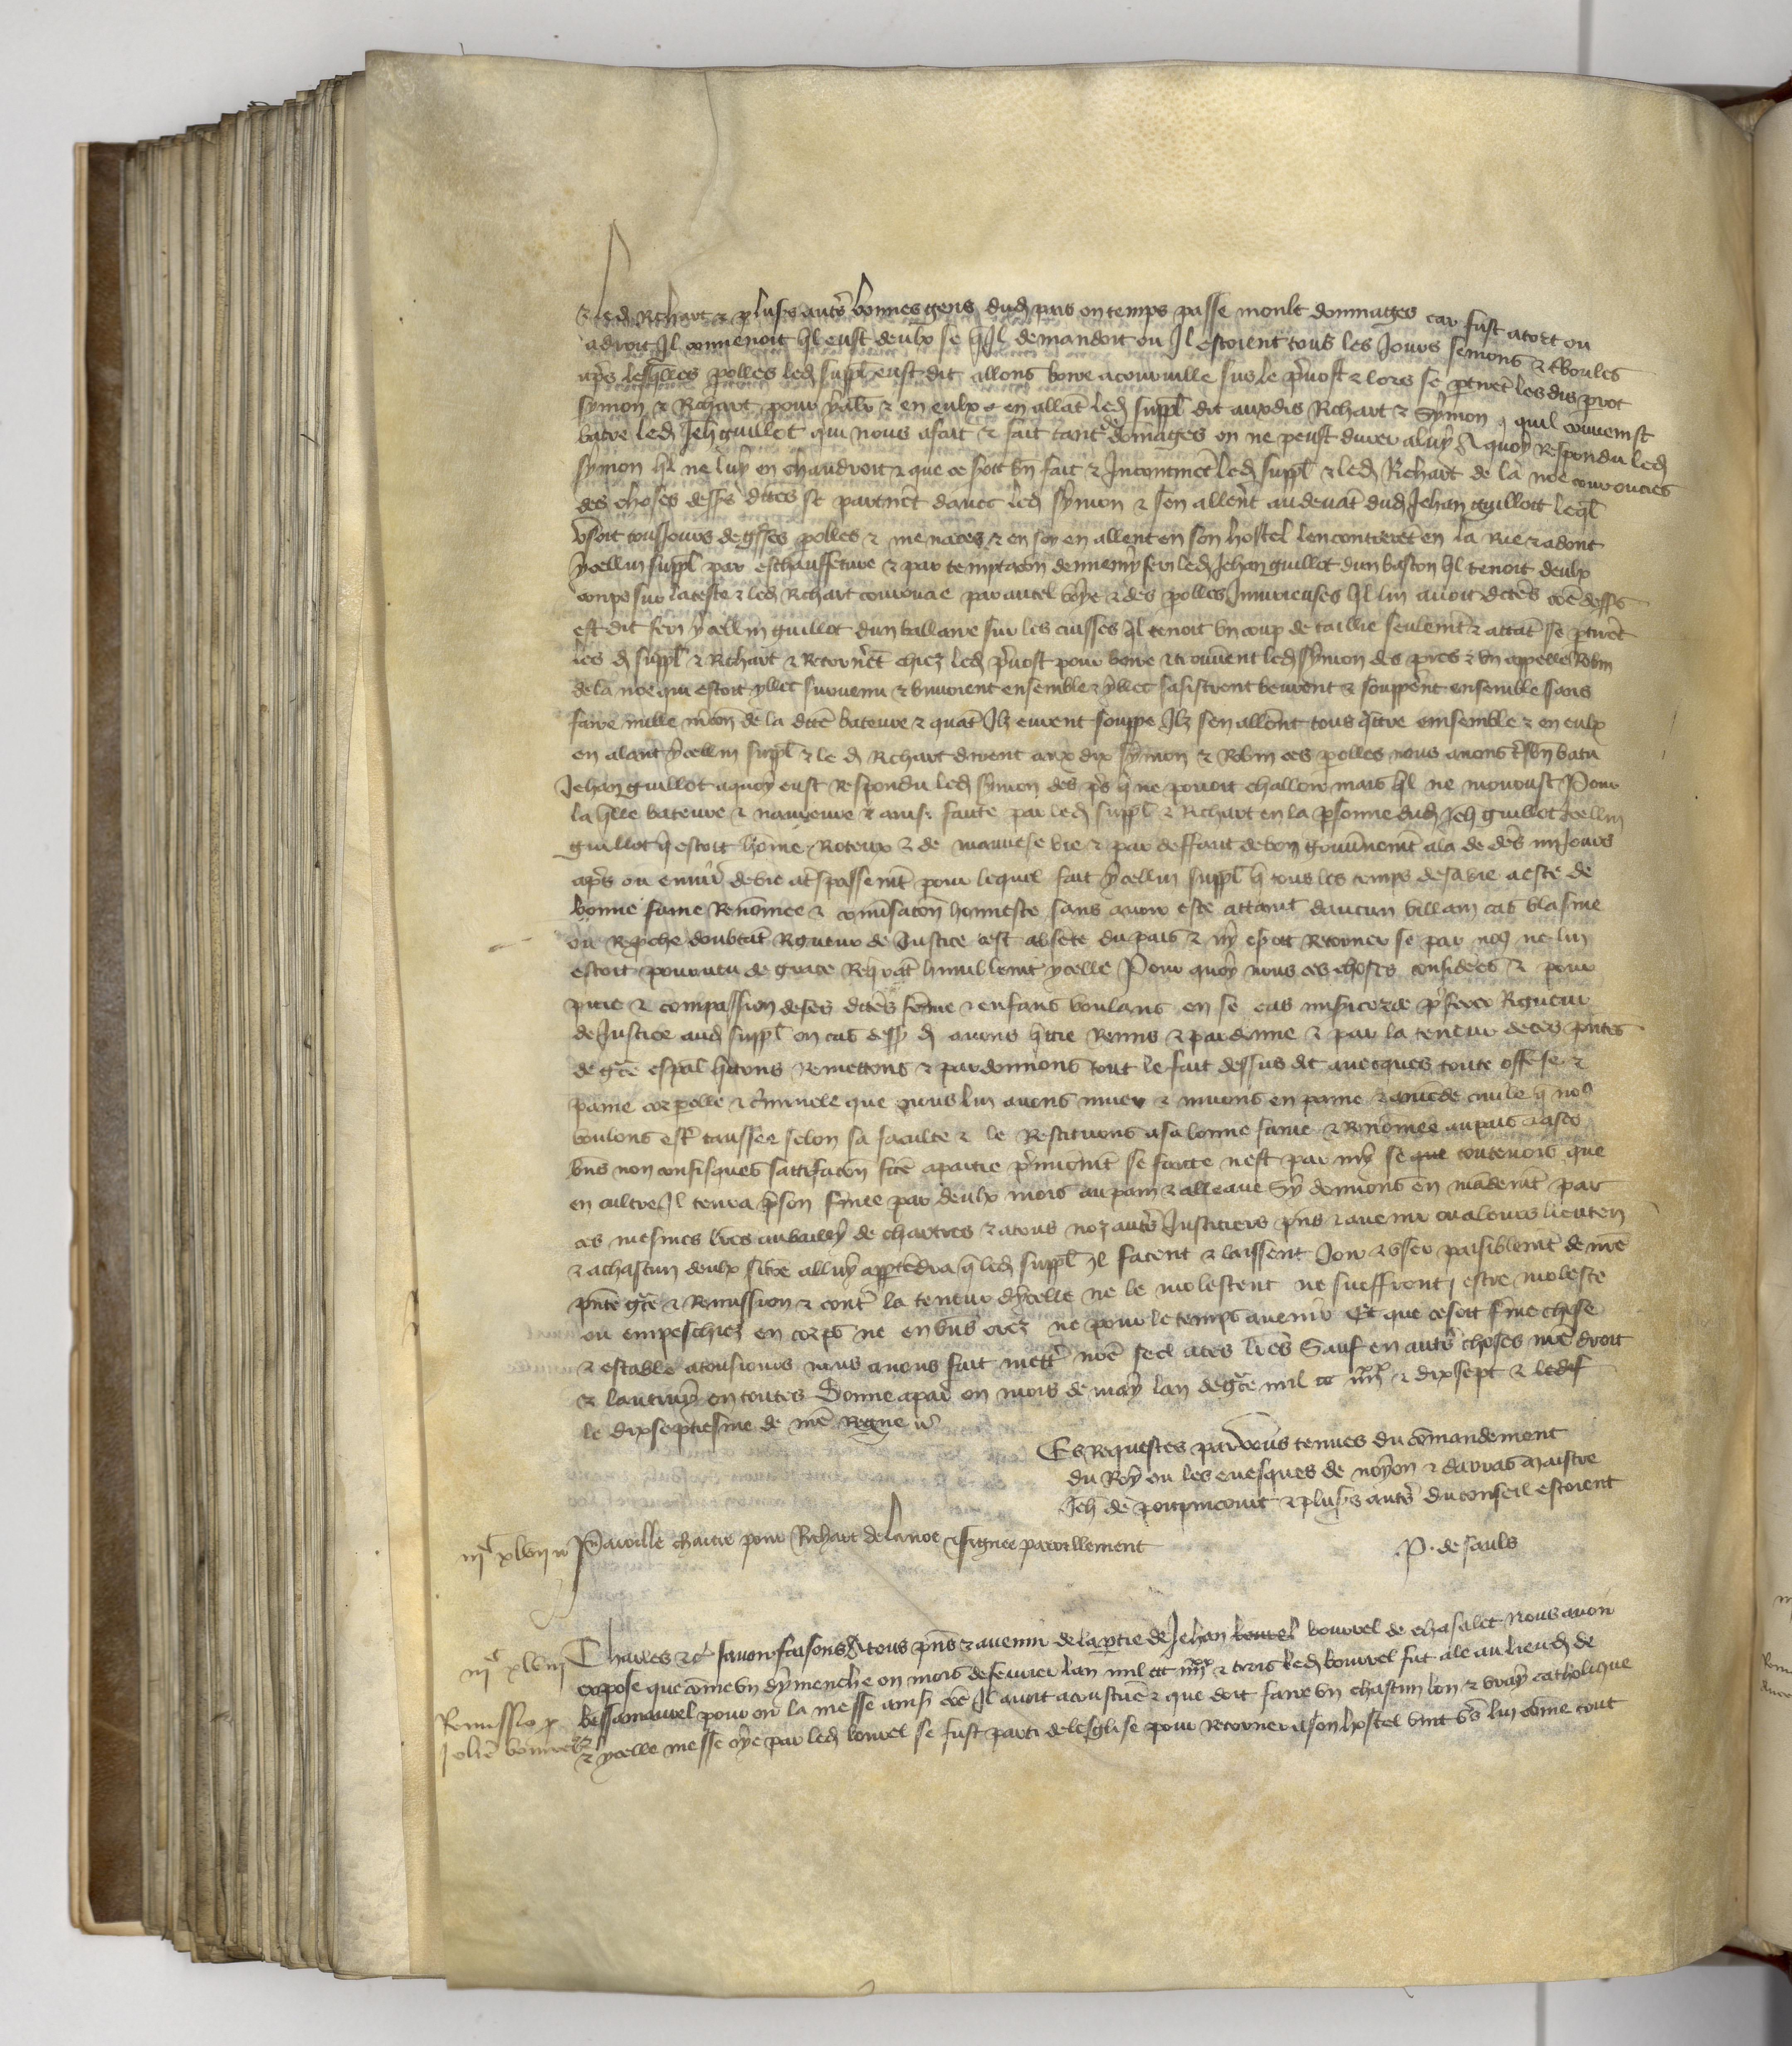 & led Richart & plus̃s autr̃s bonnes gens dud pais on temps passe moult dommages car fust atort ou
adroit Il convenoit q̃l eust deulx se q̃ Il demandoit ou Il estoient tous les Jours semons &
apr̃s lesq̃lles polles led suppl̃ eust dit allons boire acourville sus le p̃vost & lors se ptirẽt lesdis
symon & Richart pour y aler & en eulx en allãt led suppl̃ dit auxdis Richart & Symon quil convenist
batre led Jeh̃ guillot qui nous afait & fait tant de dõmages on ne peust durer aluy A quoy Respondu led
symon q̃l ne luy en chaudroit & que ce soit bñ fait & Incontinẽt led suppl̃ & led Richart de la noe courouciés
des choses dess̃s dittes se partirẽt davec led symon & sen allerẽt audevãt dud Jehan guillott leq̃l
usoit tousjours de grosses polles & menaces & en soy en allent en son hostel lencontrerẽt en la Rue & adont
ycellui suppl̃ par eschauffeture & par temptac̃on dennemy feri led Jehan guillot dun baston q̃l tenoit deulx
coups sur lateste & led Richart couroucie par autel voye & des polles Injurieuses q̃l lui avoit dittes cõe dess̃s
est dit feri ycellui guillot dun ballaire sur les cuisses q̃l tenoit un coup de taille seulemẽt & attãt se ptirẽt
les d suppl̃ & Richart & Retornerẽt chiez led p̃vost pour boire & trouverent led symon des pres & un appelle Robin
de la noe qui estoit yllec survenu & buvoient ensemble & yllec sasistrent beurent & soupperẽt ensemble sans
faire nulle mẽcion de la ditte bateure & quãt Ilz eurent souppe Ilz sen allerẽt tous q̃tre ensemble & en eulx
en alant ycellui suppl̃ & le d Richart dirent aux dix symon & Robin ces polles nous avons tresbñ batu
Jehan guillot aquoy eust Respondu led symon des pr̃s q̃ ne povoit challoir mais q̃l ne mourust Pour
la q̃lle bateure & navreure & ainsi faitte par led suppl̃ & Richart en la psonne dud Jeh̃ guillot ycellui
guillot q̃ estoit hõme Roteux & de mauvese vie & par deffaut de bon gouũnemẽt ala de des iiij Jours
apr̃s ou envirõ de vie a tr̃spassemẽt pour lequel fait ycellui suppl̃ q̃ tous les temps de sa vie a este de
bonne fame Renõmee & conṽsac̃on honneste sans avoir este attaint daucun villain cas blasme
ou Reproche doubtãt Rigueur de Justice cest absẽte du pais & ny ose Retorner se par nos̃ ne lui
estoit pourveu de grace Req̃rãt humblemt ycelle Pour quoy nous ces choses considerées & pour
pitie & compassion deses dittes fẽme & enfans voulans en se cas misericorde p̃ferer Rigueur
de Justice aud suppl̃ on cas dess̃ d avons q̃ttie Remis & pardonne & par la teneur de ces pñtes
de gr̃ce esp̃al q̃ttons Remettons & pardonnons tout le fait dessus dit avecques toute offẽse &
paine corpolle & c̃minele que nous lui avons muer & muons en paine & amẽde civile q̃ no9
voulons estr̃ taussee selon sa faculte & le Restituons asa bonne fame & Renõmee aupais & ases
bñs non confisques sattifac̃on faitte apartie p̃mieremẽt se faitte nest par my se que toutevois que
en oultre Il tenra p̃son fermee par deulx mois au pain & alleaue Sy donnons en mãdemẽt par
ces mesmes lr̃es au bailly de chartres & atous noz autr̃s Justiciers pñs & avenir ou aleurs lieuten̄
& achascun deulx sicõe alluy appartẽdra q̃ led suppl̃ Il facent & laissent Joir & user paisiblemẽt de nr̃e
pñte gr̃ce & Remission & contr̃ la teneur dycelle ne le molestent ne sueffrent estre moleste
ou empeschiez en corps ne en bñs ores ne pour le temps avenir Et que cesoit ferme chose
& estable atousjours nous avons fait mettr̃ nr̃e seel aces lr̃es Sauf en autr̃s choses nr̃e droit
& lautruy en toutes Donne apar̃ on mois de may lan degr̃ce mil ccc iiijxx & dixsept & ledit
le dixseptiesme de nr̃e Regne
Es requestes par vous tenues du cõmandement
du Roy ou les evesques de noyon & darras maistre
Jeh̃ de poupincourt & plus̃s autr̃s du conseil estoient
iijc xlvij Pareille chartre pour Richart delanoe & signee pareillement
.P. de sauls
iijc xlviij Charles &c̃ savoir faisons A tous pñs & avenir de la ptie de Jehan bourrel bourrel de chasalet Nous avon
expose que cõme un dymenche on mois de fevrier lan mil ccc iiijxx & trois led bourrel fut ale au lieu d de
Remissio p̃ bessamarel pour oir la messe ainsi cõe Il avoit acoustumẽ & que doit faire un chascun bon & vray catholique
Johẽ bourrel & ycelle messe oye par led bourrel se fust parti de lesglise pour Retorner ason hostel vint ṽs lui cõme tout